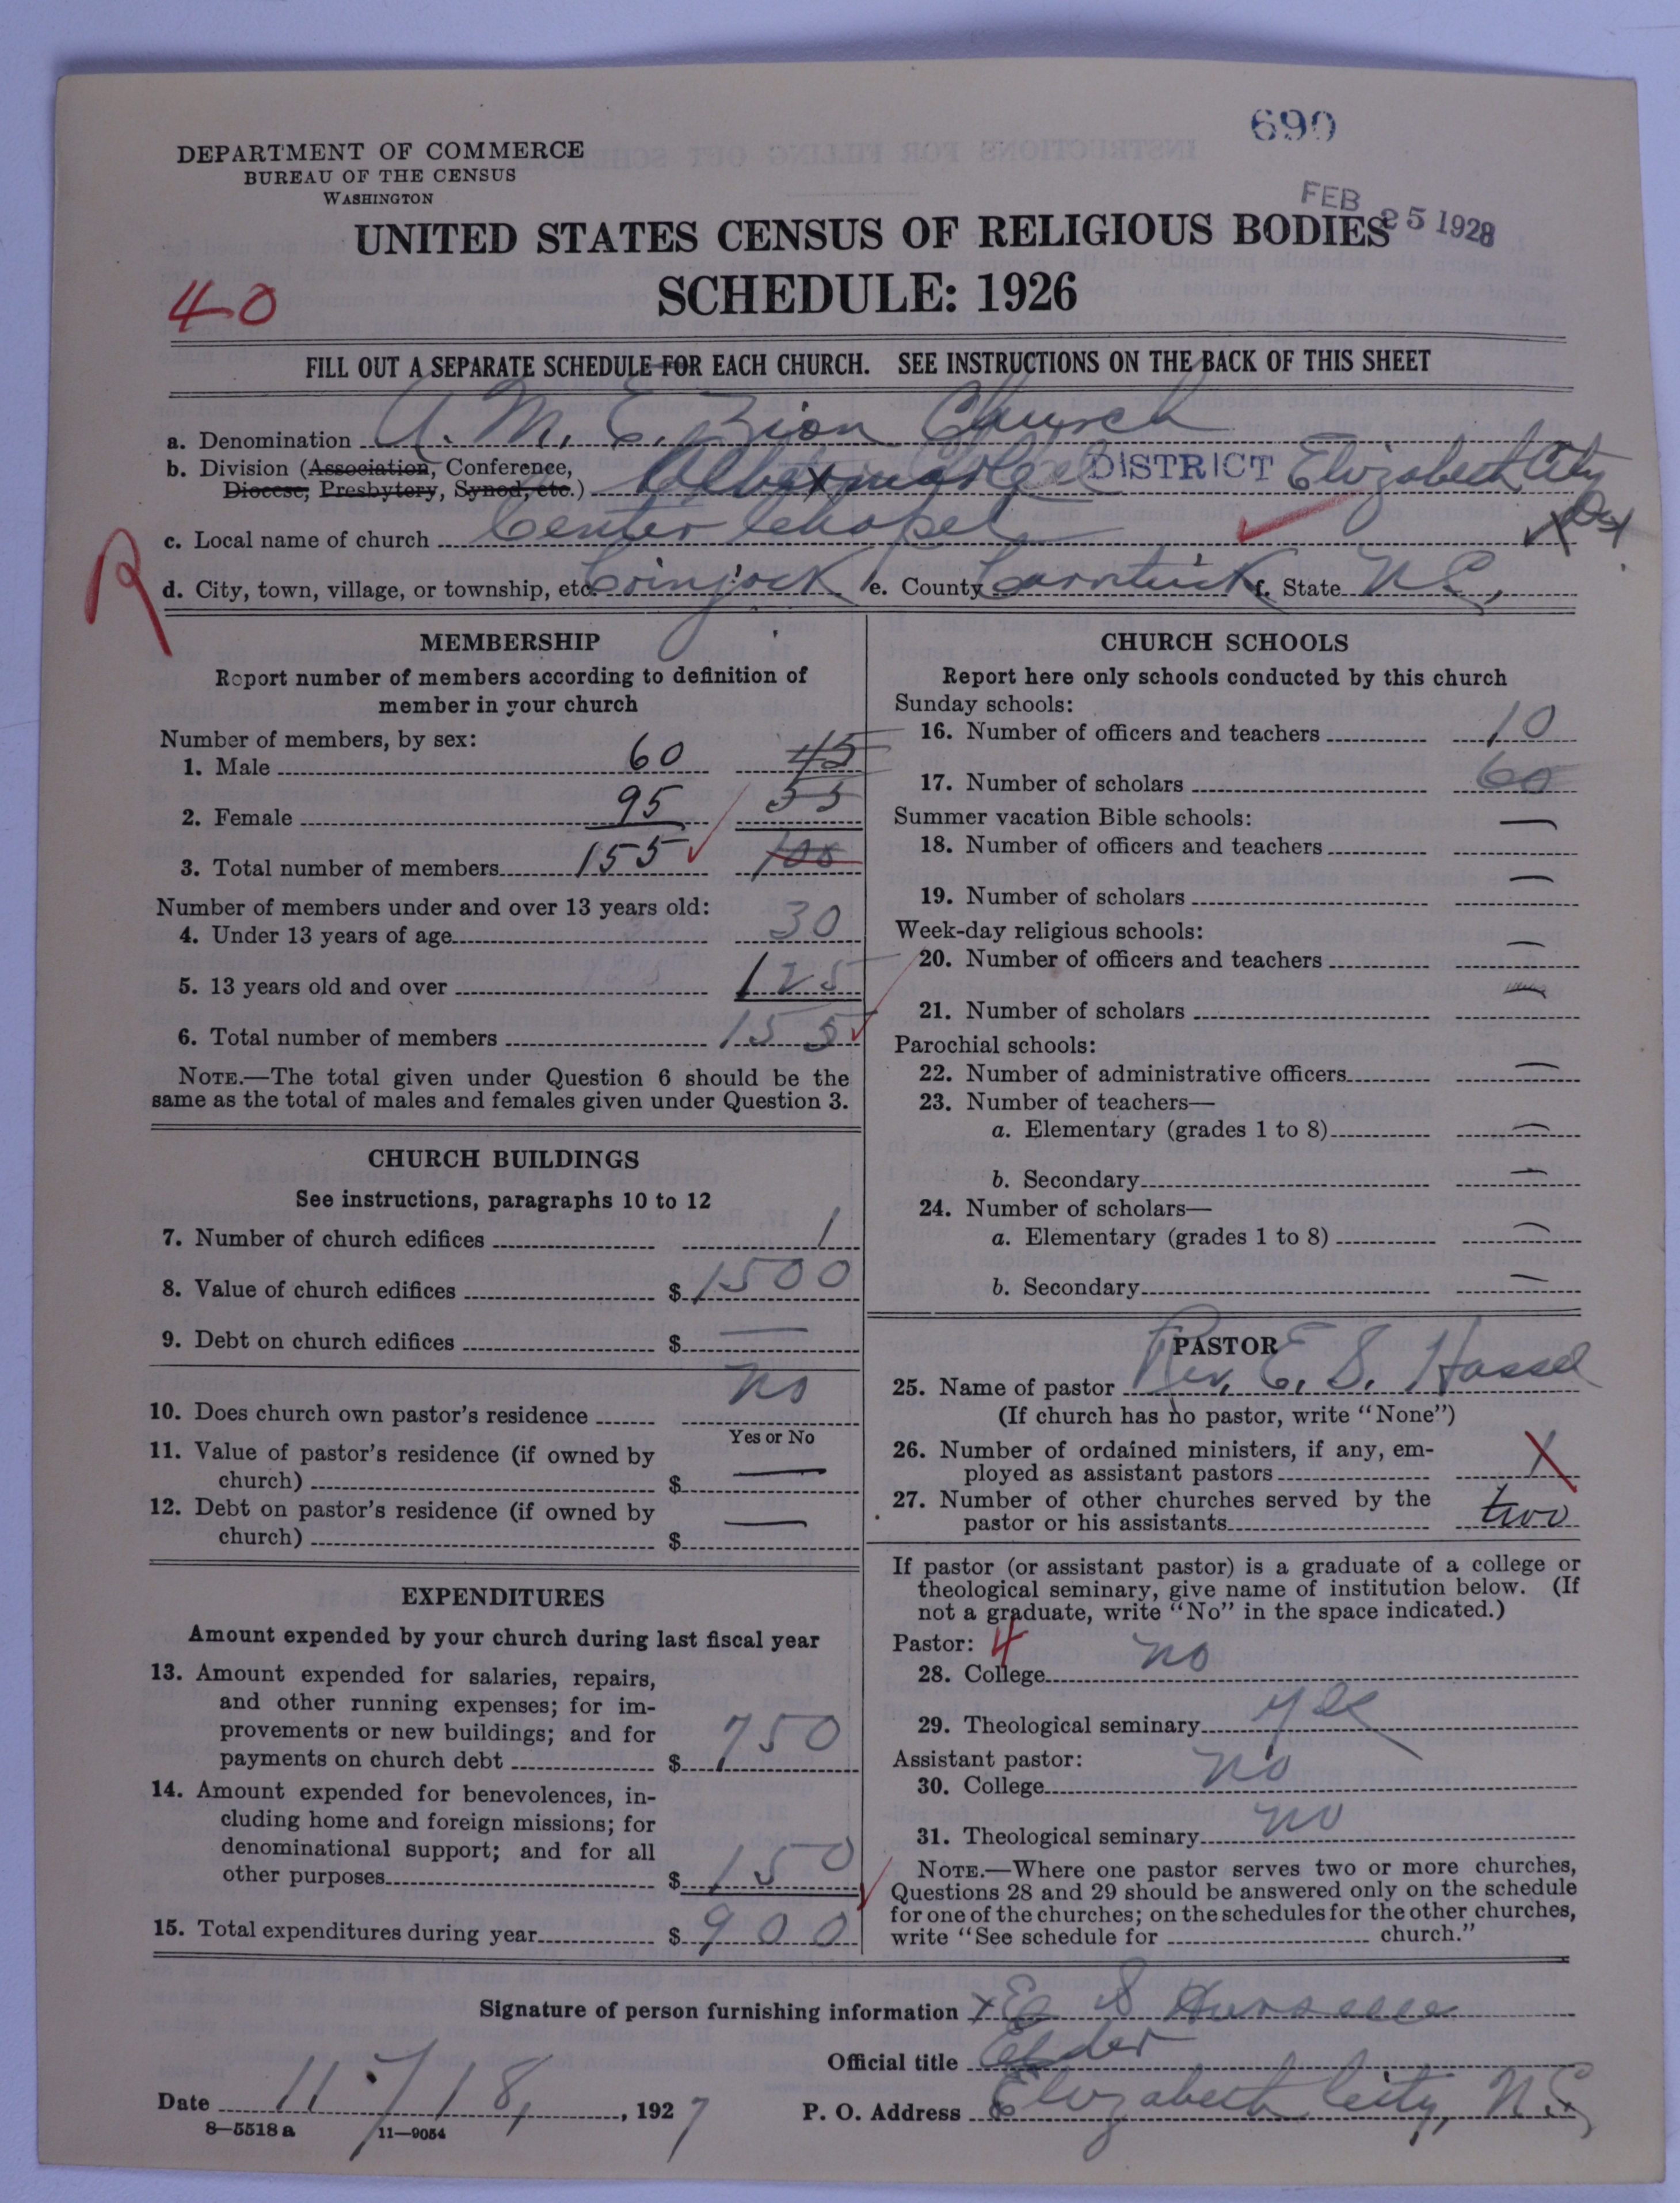 690
DEPARTMENT OF COMMERCE
BUREAU OF THE CENSUS
WASHINGTON
FEB 25 1928
UNITED STATES CENSUS OF RELIGIOUS BODIES
SCHEDULE: 1926
40
FILL OUT A SEPARATE SCHEDULE FOR EACH CHURCH. SEE INSTRUCTIONS ON THE BACK OF THIS SHEET
a. Denomination A. M. E. Zion Church
b. Division (Association, Conference, Diocese, Presbytery, Synod, etc.) Albermarle DISTRICT Elizabeth City
c. Local name of church Center Chapel
R
d. City, town, village, or township, etc. Coinjock e. County Currituck f. State N.C.
MEMBERSHIP
Report number of members according to definition of
member in your church
Number of members, by sex:
1. Male 60 45
2. Female 95 55
3. Total number of members 155 100
Number of members under and over 13 years old:
4. Under 13 years of age 30
5. 13 years old and over 125
6. Total number of members 155
NOTE.—The total given under Question 6 should be the
same as the total of males and females given under Question 3.
CHURCH BUILDINGS
See instructions, paragraphs 10 to 12
7. Number of church edifices 1
8. Value of church edifices $ 1500
9. Debt on church edifices $ —
10. Does church own pastor's residence no
Yes or No
11. Value of pastor's residence (if owned by
church) $ —
12. Debt on pastor's residence (if owned by
church) $ —
EXPENDITURES
Amount expended by your church during last fiscal year
13. Amount expended for salaries, repairs,
and other running expenses; for im-
provements or new buildings; and for
payments on church debt $ 750
14. Amount expended for benevolences, in-
cluding home and foreign missions; for
denominational support; and for all
other purposes $ 150
15. Total expenditures during year $ 900
CHURCH SCHOOLS
Report here only schools conducted by this church
Sunday schools:
16. Number of officers and teachers 10
17. Number of scholars 60
Summer vacation Bible schools:
18. Number of officers and teachers —
19. Number of scholars —
Week-day religious schools:
20. Number of officers and teachers —
21. Number of scholars —
Parochial schools:
22. Number of administrative officers —
23. Number of teachers—
a. Elementary (grades 1 to 8) —
b. Secondary —
24. Number of scholars—
a. Elementary (grades 1 to 8) —
b. Secondary —
PASTOR
25. Name of pastor Rev. E. S. Hassel
(If church has no pastor, write "None")
26. Number of ordained ministers, if any, em-
ployed as assistant pastors 1
27. Number of other churches served by the
pastor or his assistants two
If pastor (or assistant pastor) is a graduate of a college or
theological seminary, give name of institution below. (If
not a graduate, write "No" in the space indicated.)
Pastor: 4
28. College no
29. Theological seminary yes
Assistant pastor:
30. College no
31. Theological seminary no
NOTE.—Where one pastor serves two or more churches,
Questions 28 and 29 should be answered only on the schedule
for one of the churches; on the schedules for the other churches,
write "See schedule for church."
Signature of person furnishing information x E S
Official title Elder
Date 11/18, 1927
P. O. Address Elizabeth City, N.C.
8—5518 a 11—9054